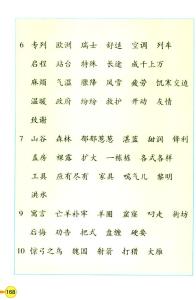 6 专列 欧洲 瑞士 舒适 空调 列车
启程 站台 特殊 长途 成千上万
麻烦 气温 骤降 风雪 疲劳 饥寒交迫
温暖 政府 纷纷 救护 开动 友情
致谢
7 山谷 森林 郁郁葱葱 湛蓝 甜润 锋利
盖房 裸露 扩大 一栋栋 各式各样
工具 应有尽有 家具 喘气儿 黎明
洪水
9 寓言 亡羊补牢 羊圈 窟窿 叼走 街坊
后悔 劝告 把式 盘缠 硬要
10 惊弓之鸟 魏国 射箭 打猎 大雁
168